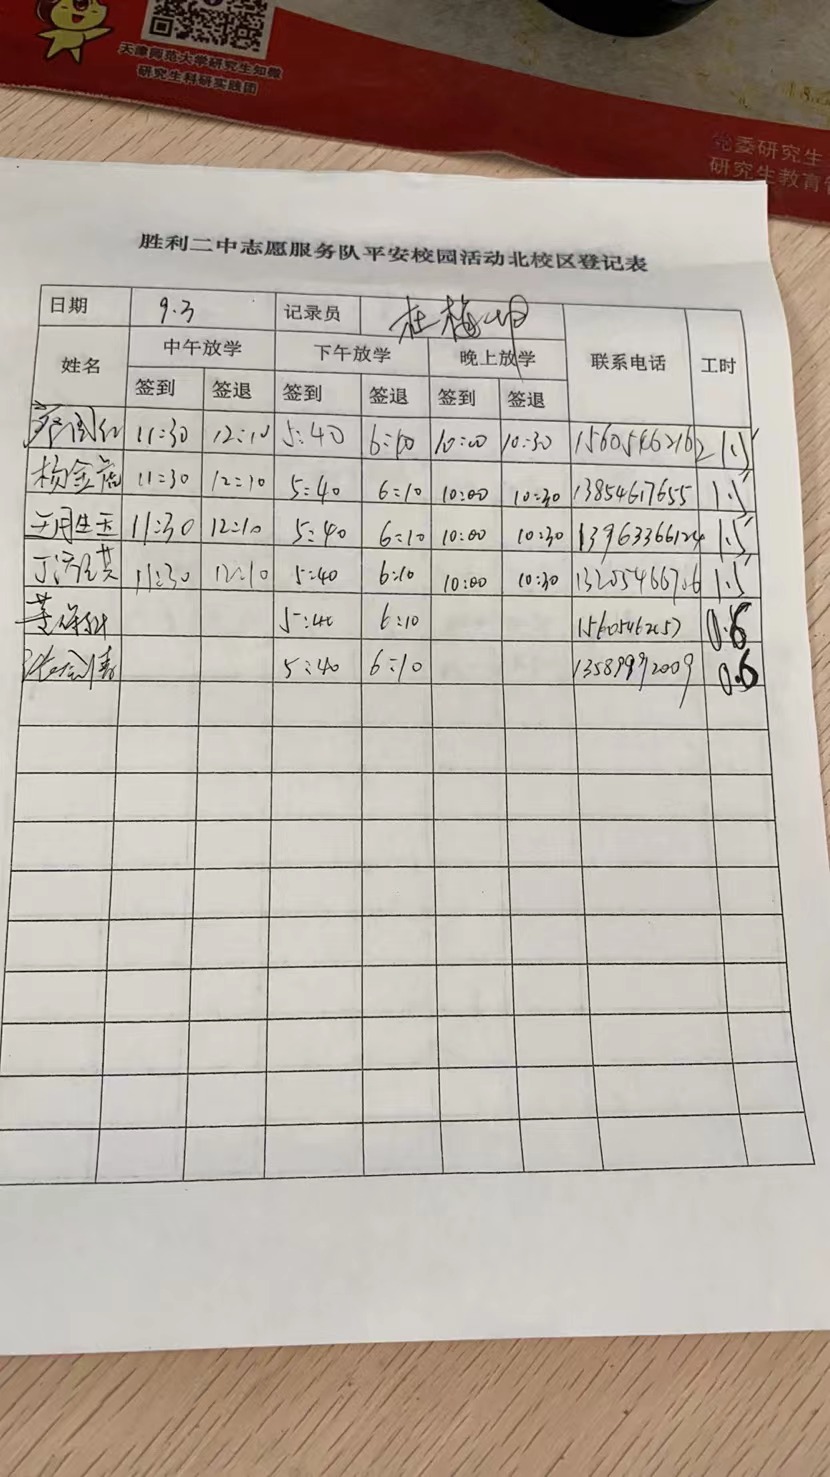 天津师范大学研究生知微
研究生科研实践团
党委研究生
研究生教育管
胜利二中志愿服务队平安校园活动北校区登记表
日期 9.3 记录员 杜梅
姓名 中午放学 下午放学 晚上放学 联系电话 工时
签到 签退 签到 签退 签到 签退
11:30 12:10 5:40 6:10 10:00 10:30 15605462162 1.5
杨金 11:30 12:10 5:40 6:10 10:00 10:30 13854617655 1.5
11:30 12:10 5:40 6:10 10:00 10:30 13963366124 1.5
丁 11:30 12:10 5:40 6:10 10:00 10:30 13205466706 1.5
董 5:40 6:10 0.6
5:40 6:10 13589992009 0.6